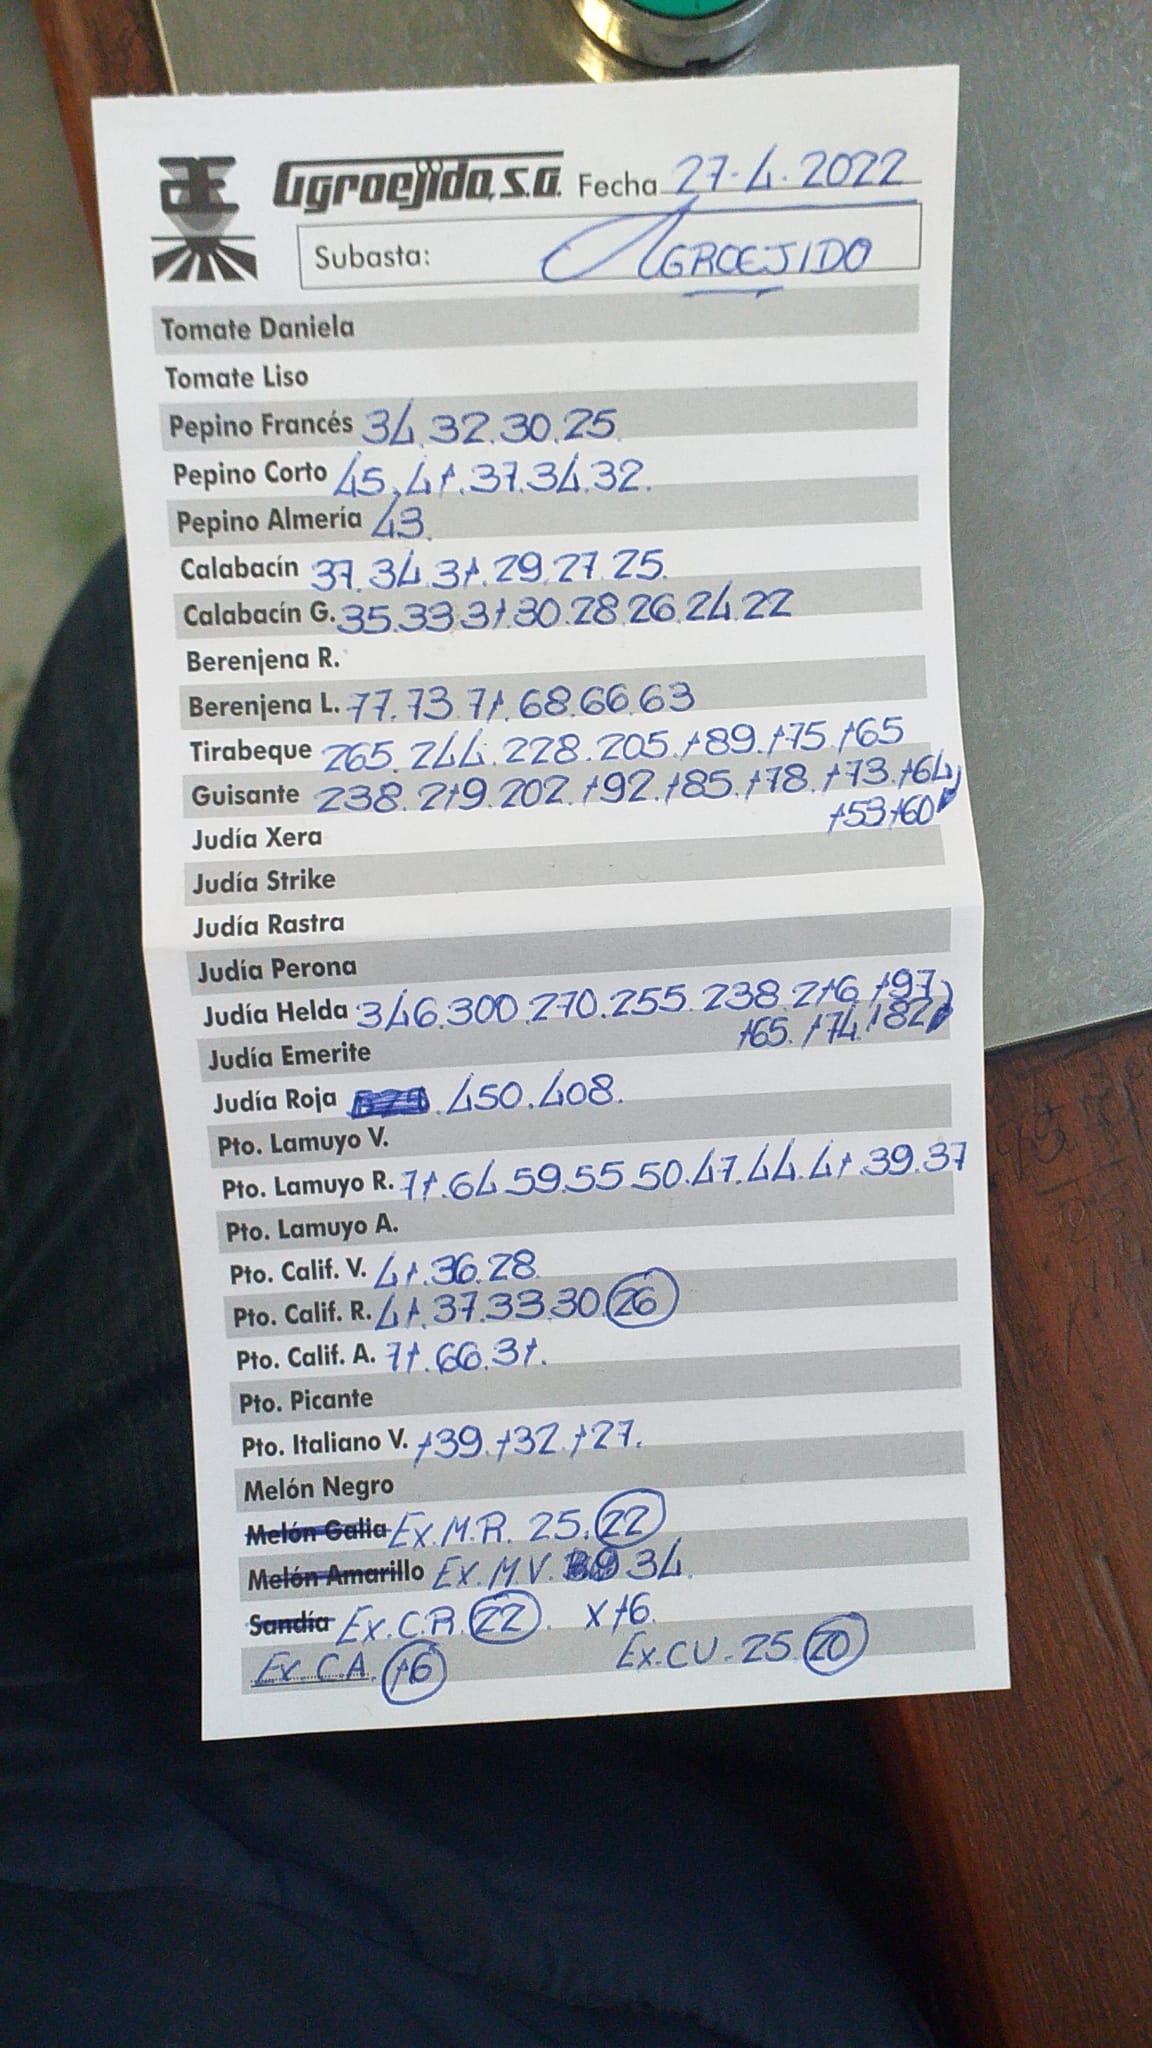 AE Agroejido, s.a. Fecha 27-4.2022
Subasta: AGROEJIDO
Tomate Daniela
Tomate Liso
Pepino Francés 34.32.30.25
Pepino Corto 45.41.37.34.32.
Pepino Almería 43.
Calabacín 37.34.31.29.27.25.
Calabacín G. 35.33.31.30.28.26.24.22
Berenjena R.
Berenjena L. 77.73.71.68.66.63
Tirabeque 265.244.228.205.189.175.165
Guisante 238.219.202.192.185.178.173.164
153.160
Judía Xera
Judía Strike
Judía Rastra
Judía Perona
Judía Helda 346.300.270.255.238.216.197
165.174.182
Judía Emerite
Judía Roja 450.408.
Pto. Lamuyo V.
Pto. Lamuyo R. 71.64.59.55.50.47.44.41.39.37
Pto. Lamuyo A.
Pto. Calif. V. 41.36.28
Pto. Calif. R. 41.37.33.30.26
Pto. Calif. A. 71.66.31.
Pto. Picante
Pto. Italiano V. 139.132.127.
Melón Negro
Melón Galia Ex.M.R. 25.22
Melón Amarillo Ex.M.V. 34.
Sandía Ex.C.R. 22. x16.
Ex.CA. 16 Ex.CV-25.20